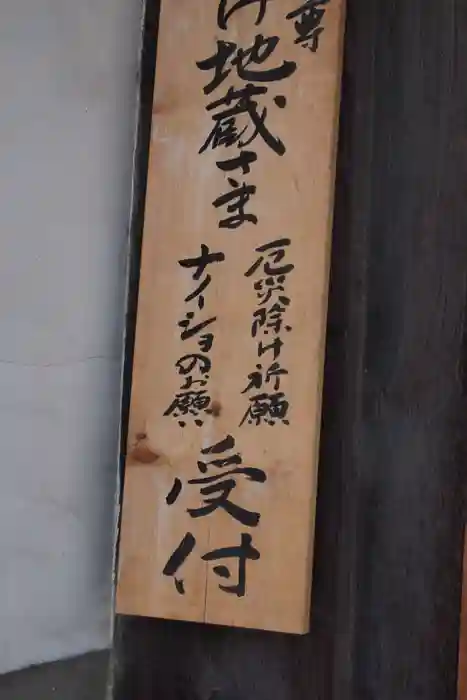 尊
け地蔵さま
厄災除け祈願
ナイーショのお願い
受付